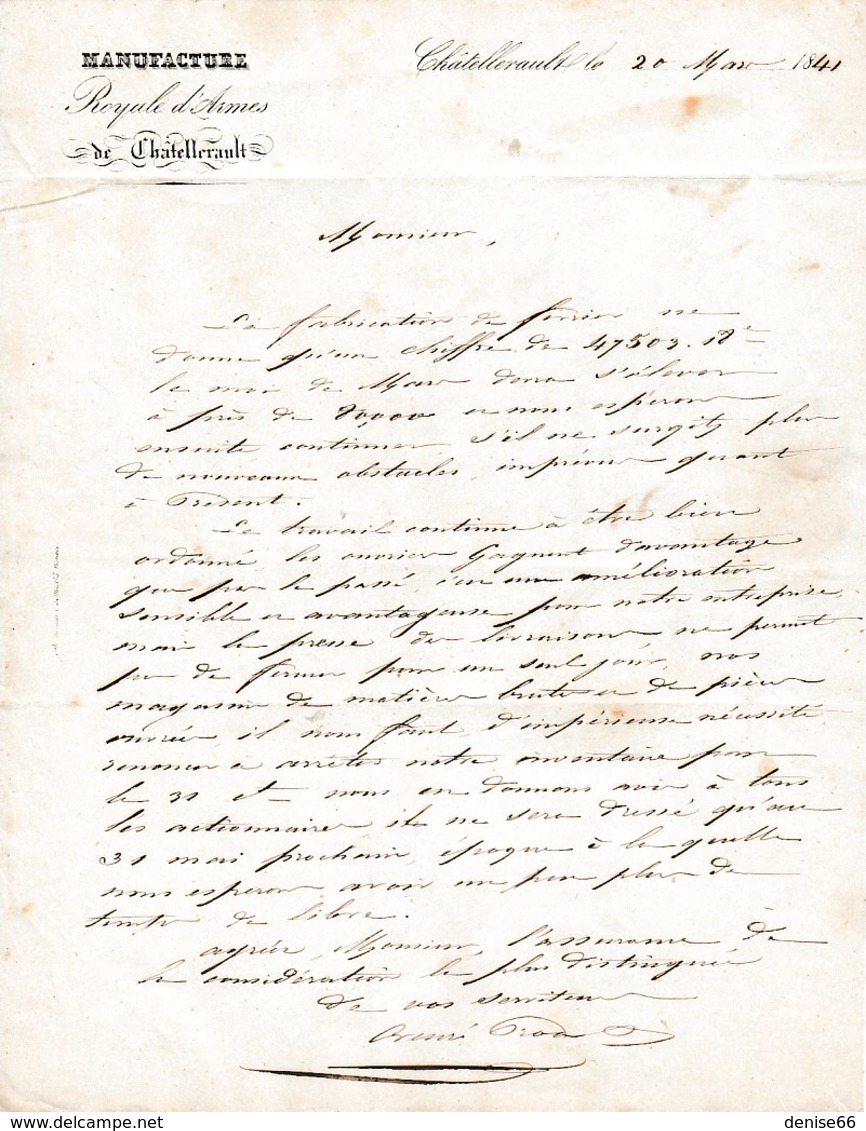 MANUFACTURE
Royale d'Armes
de Châtellerault
Châtellerault le 20 Mars 1841
Monsieur,
La fabrication de février ne
donne qu'un chiffre de 47503. 18c
le mois de Mars devra s'élever
à près de 80,000 et nous espérons
ensuite continuer, s'il ne surgit plus
de nouveaux obstacles, imprévus quant
à Présent.
Le travail continue à être bien
ordonné, les ouvriers Gagnent d'avantage
que par le passé, c'est une amélioration
sensible et avantageuse pour notre entreprise,
mais la presse des livraisons ne permet
pas de fermer pour un seul jour, nos
magasins de matières brutes et de pièces
ouvrées, il nous faut d'impérieuse nécessité
renoncer à arrêter notre inventaire pour
le 31 ct nous en donnons avis à tous
les actionnaires il ne sera dressé qu'au
31 mai prochain, époque à la quelle
nous espérons avoir un peu plus de
temps de libre.
agréez, Monsieur, l'assurance de
la considération la plus distinguée
de vos serviteurs
denise66